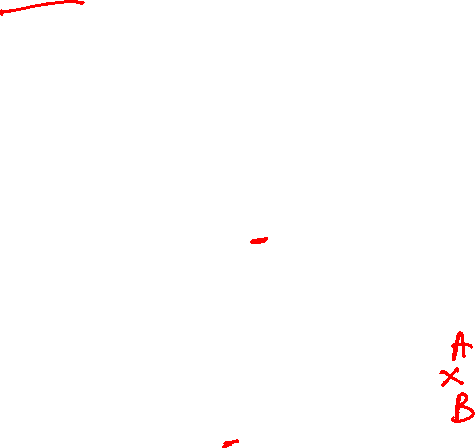 A
×
B